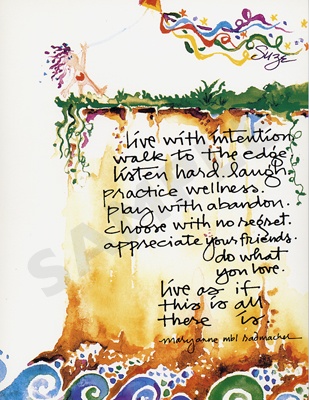 Suze
live with intention.
walk to the edge.
listen hard. laugh.
practice wellness.
play with abandon.
choose with no regret.
appreciate your friends.
do what
you love.
live as if
this is all
there is.
maryanne mbl radmacher